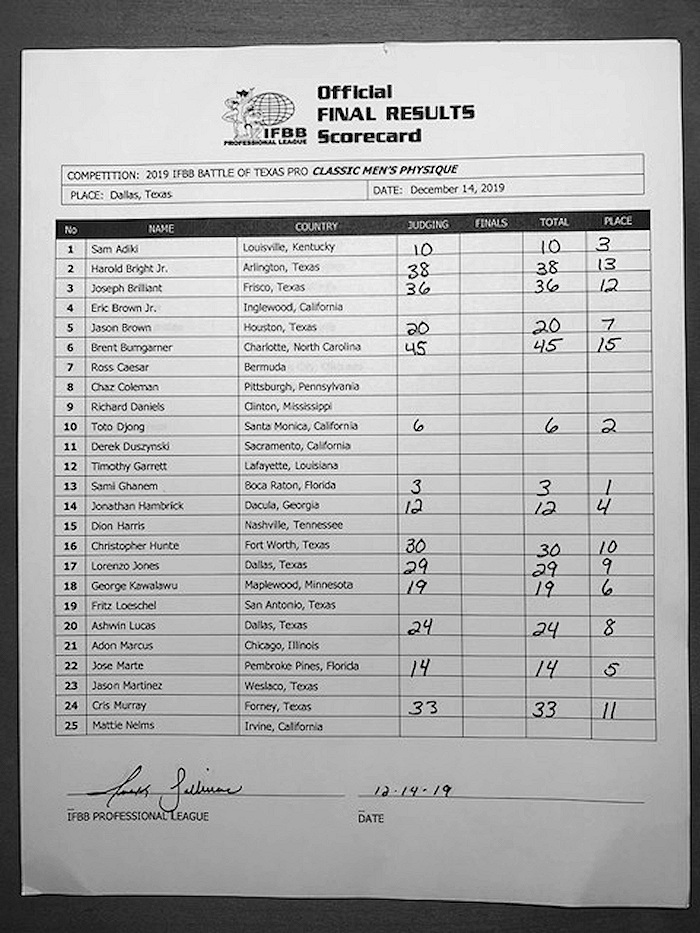 Official
FINAL RESULTS
Scorecard
IFBB
PROFESSIONAL LEAGUE
COMPETITION: 2019 IFBB BATTLE OF TEXAS PRO CLASSIC MEN'S PHYSIQUE
PLACE: Dallas, Texas DATE: December 14, 2019
No NAME COUNTRY JUDGING FINALS TOTAL PLACE
1 Sam Adiki Louisville, Kentucky 10 10 3
2 Harold Bright Jr. Arlington, Texas 38 38 13
3 Joseph Brilliant Frisco, Texas 36 36 12
4 Eric Brown Jr. Inglewood, California
5 Jason Brown Houston, Texas 20 20 7
6 Brent Bumgarner Charlotte, North Carolina 45 45 15
7 Ross Caesar Bermuda
8 Chaz Coleman Pittsburgh, Pennsylvania
9 Richard Daniels Clinton, Mississippi
10 Toto Djong Santa Monica, California 6 6 2
11 Derek Duszynski Sacramento, California
12 Timothy Garrett Lafayette, Louisiana
13 Sami Ghanem Boca Raton, Florida 3 3 1
14 Jonathan Hambrick Dacula, Georgia 12 12 4
15 Dion Harris Nashville, Tennessee
16 Christopher Hunte Fort Worth, Texas 30 30 10
17 Lorenzo Jones Dallas, Texas 29 29 9
18 George Kawalawu Maplewood, Minnesota 19 19 6
19 Fritz Loeschel San Antonio, Texas
20 Ashwin Lucas Dallas, Texas 24 24 8
21 Adon Marcus Chicago, Illinois
22 Jose Marte Pembroke Pines, Florida 14 14 5
23 Jason Martinez Weslaco, Texas
24 Cris Murray Forney, Texas 33 33 11
25 Mattie Nelms Irvine, California
12-14-19
IFBB PROFESSIONAL LEAGUE DATE